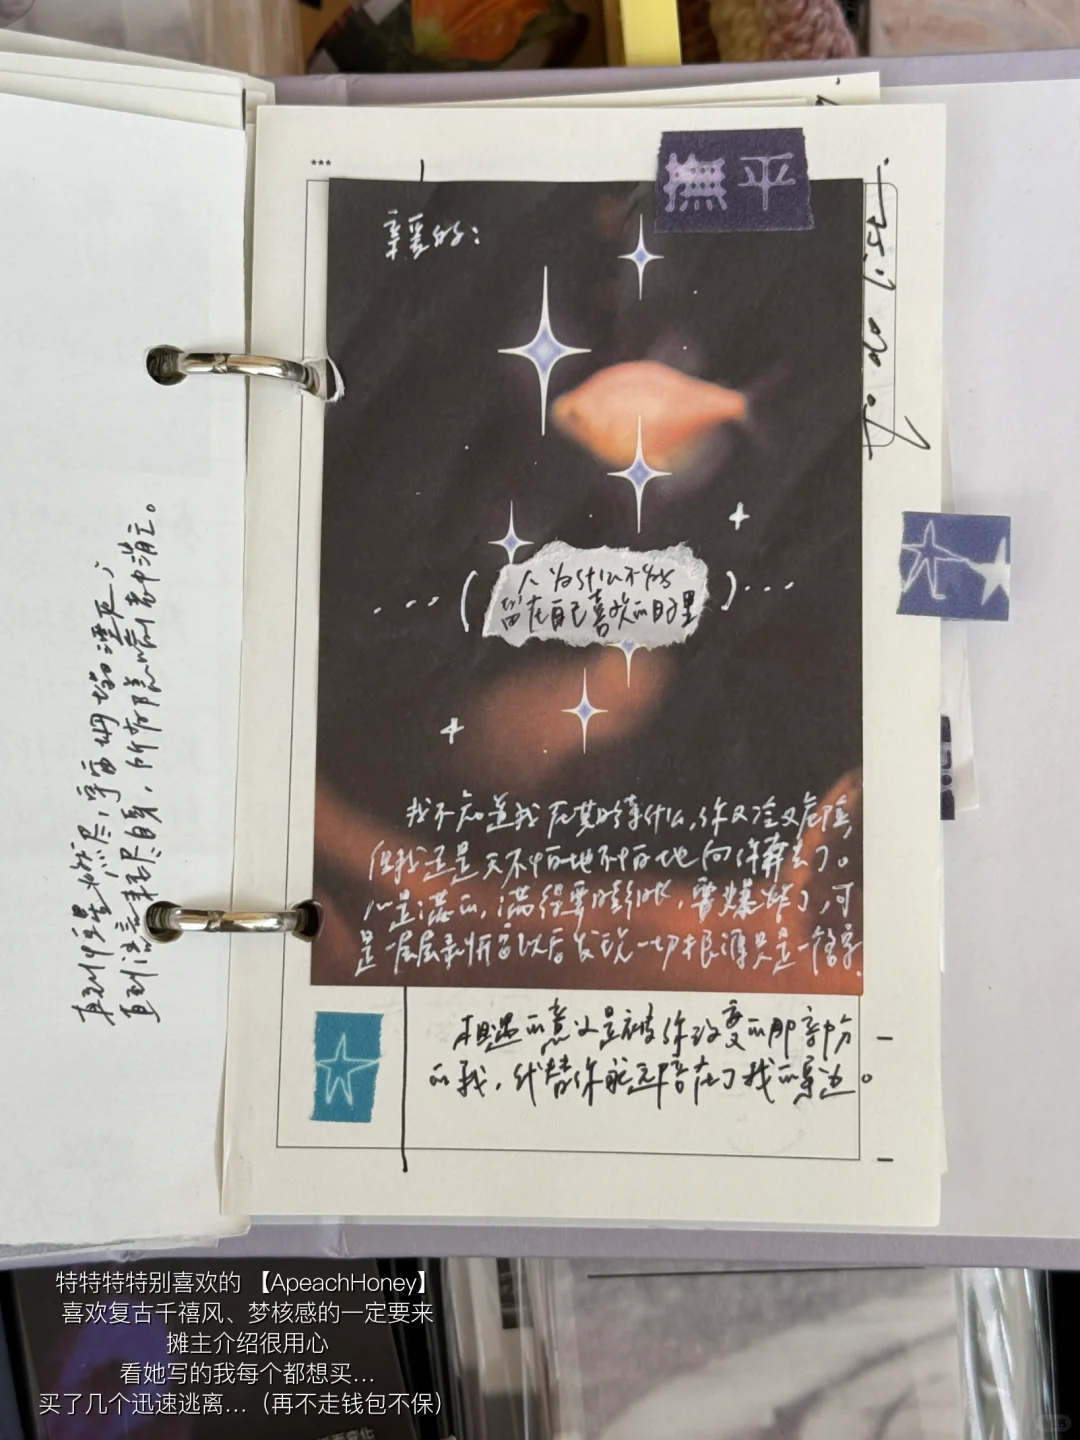 直到恒星燃尽，宇宙坍塌湮灭；
直到流言耗尽自身，所有隐喻表中消亡。
***
蕉平
亲爱的：
人为什么不能
留在自己喜欢的日子里
我不知道我在其时等什么，你又冷又危险，
但我还是天不怕地不怕地向你奔去了。
心是满的，满得要膨胀，要爆炸了，可
是一层层剥开它以后发现一切根源只是一个字
相遇的意义是被你改变的那部分
的我，代替你永远陪在了我的身边。
特特特特别喜欢的 【ApeachHoney】
喜欢复古千禧风、梦核感的一定要来
摊主介绍很用心
看她写的我每个都想买...
买了几个迅速逃离...（再不走钱包不保）